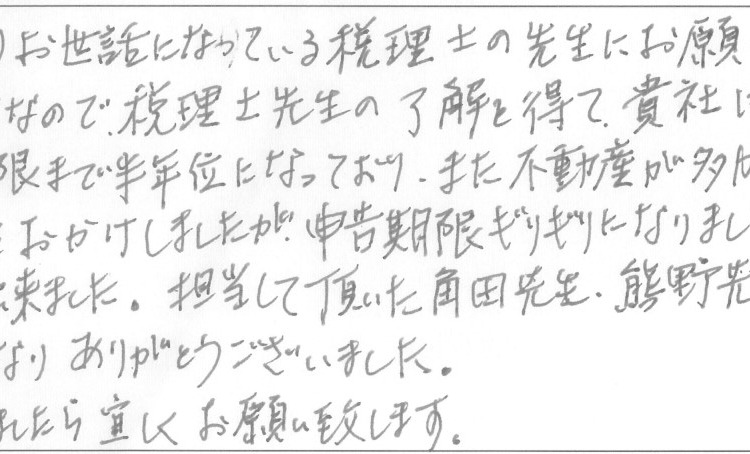 お世話になっている税理士の先生にお願
なので、税理士先生の了解を得て、貴社に
限まで半年位になっており、また不動産が多
おかけしましたが、申告期限ぎりぎりになりまし
来ました。担当して頂いた角田先生、熊野先
なり ありがとうございました。
ましたら宜しくお願い致します。